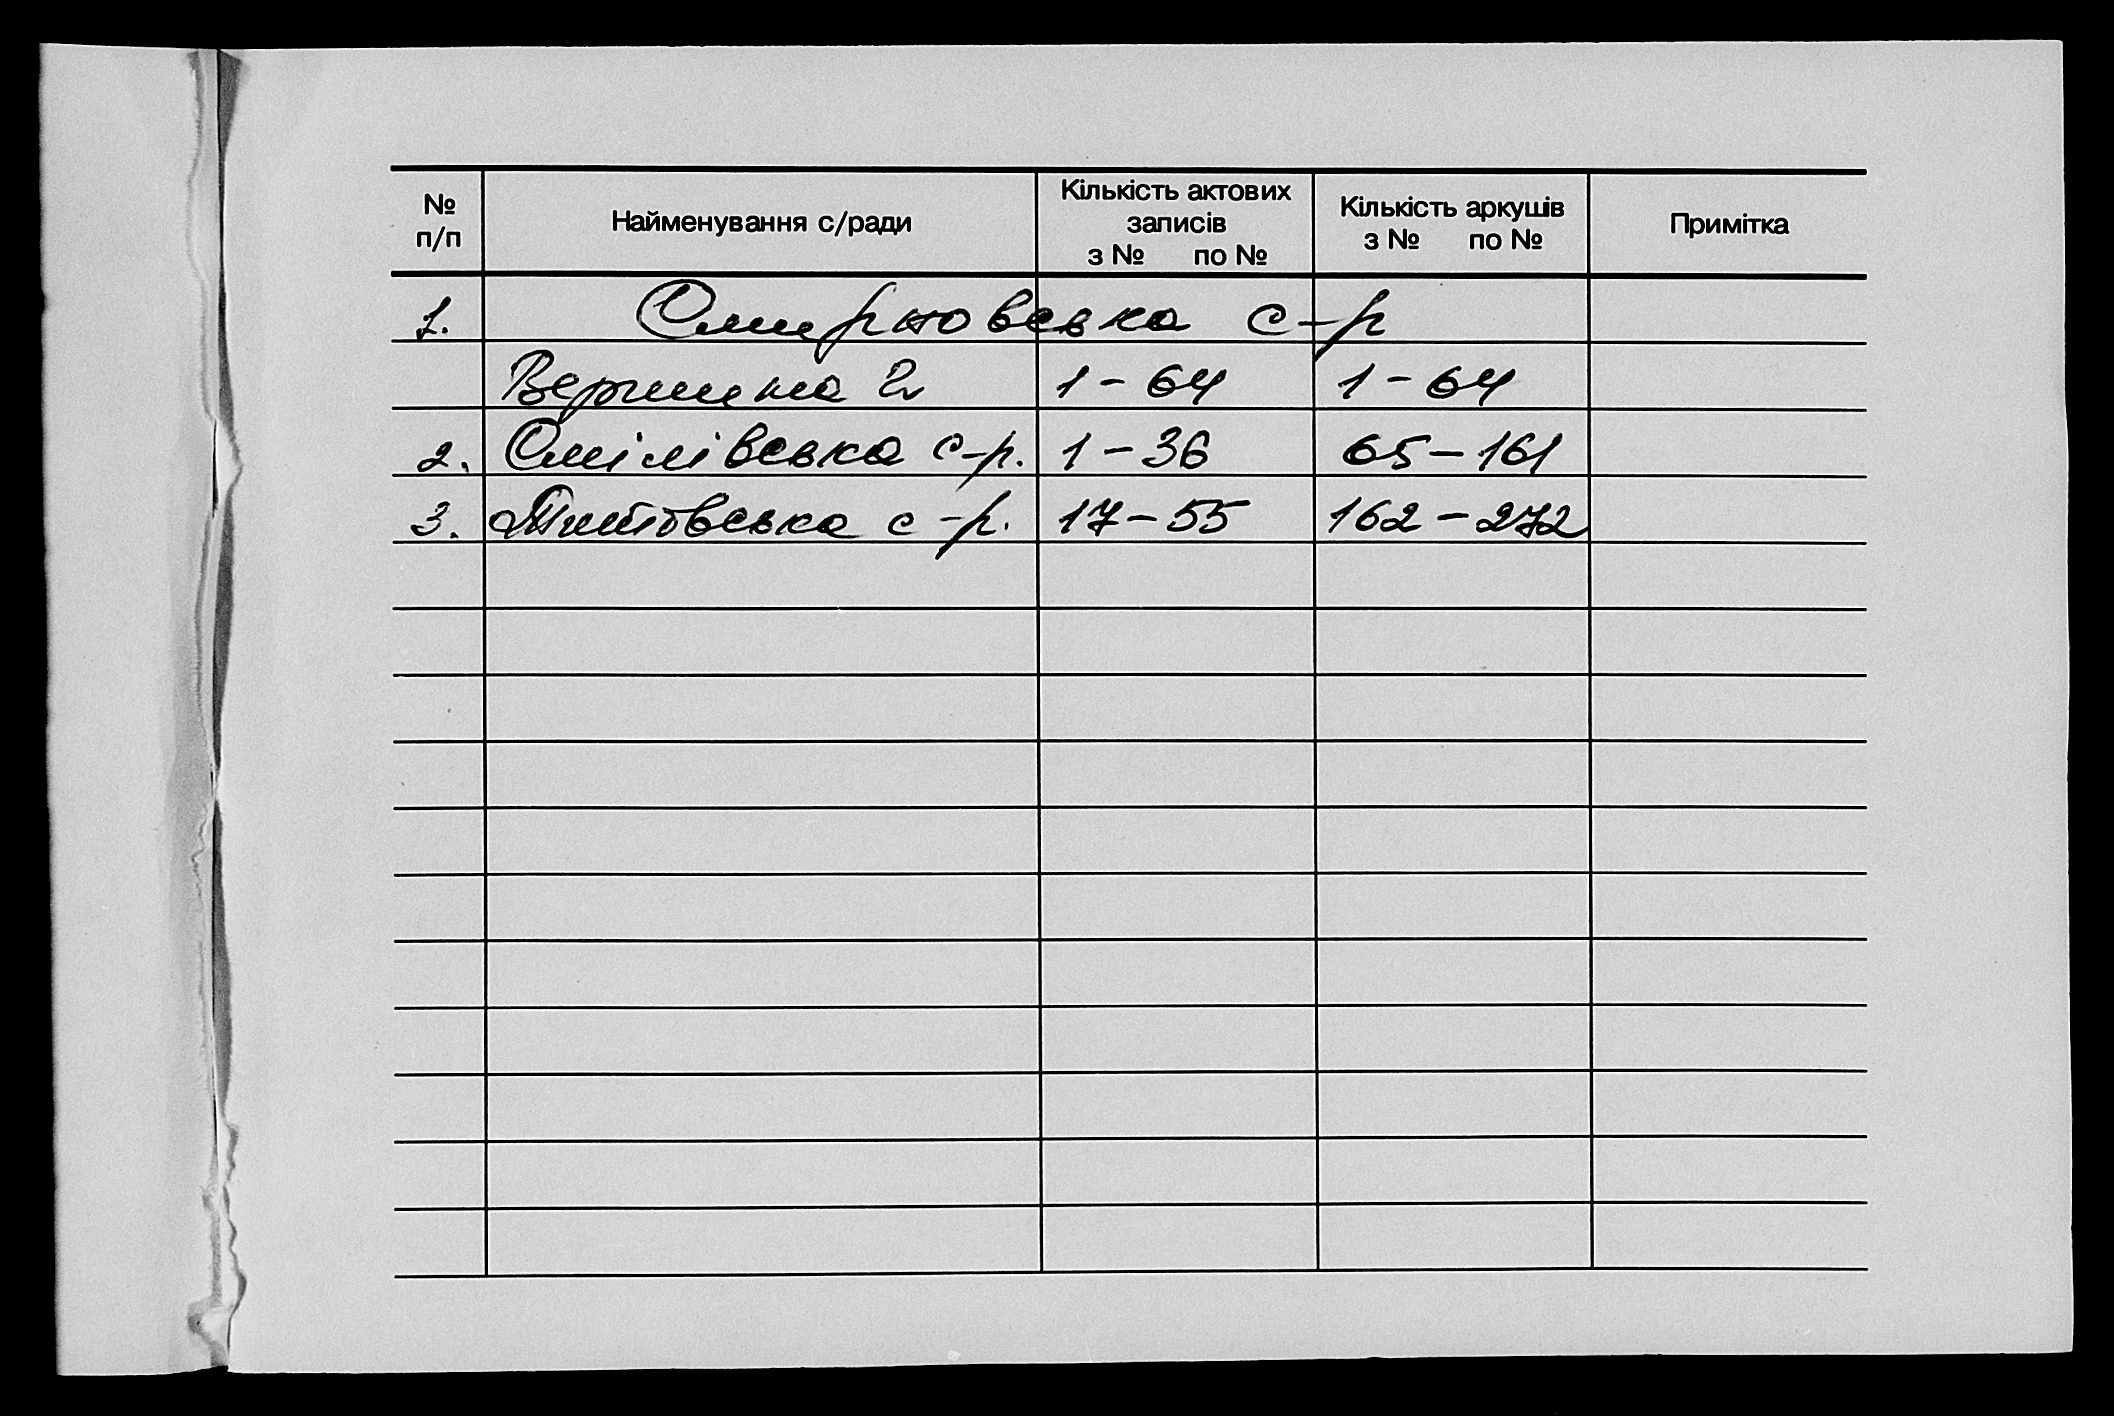 № п/п Найменування с/ради Кількість актових записів з № по № Кількість аркушів з № по № Примітка
1. Смирновська с-р
Вершина 2 1 - 64 1 - 64
2. Смілівська с-р. 1 - 36 65 - 161
3. с-р. 17 - 55 162 - 272